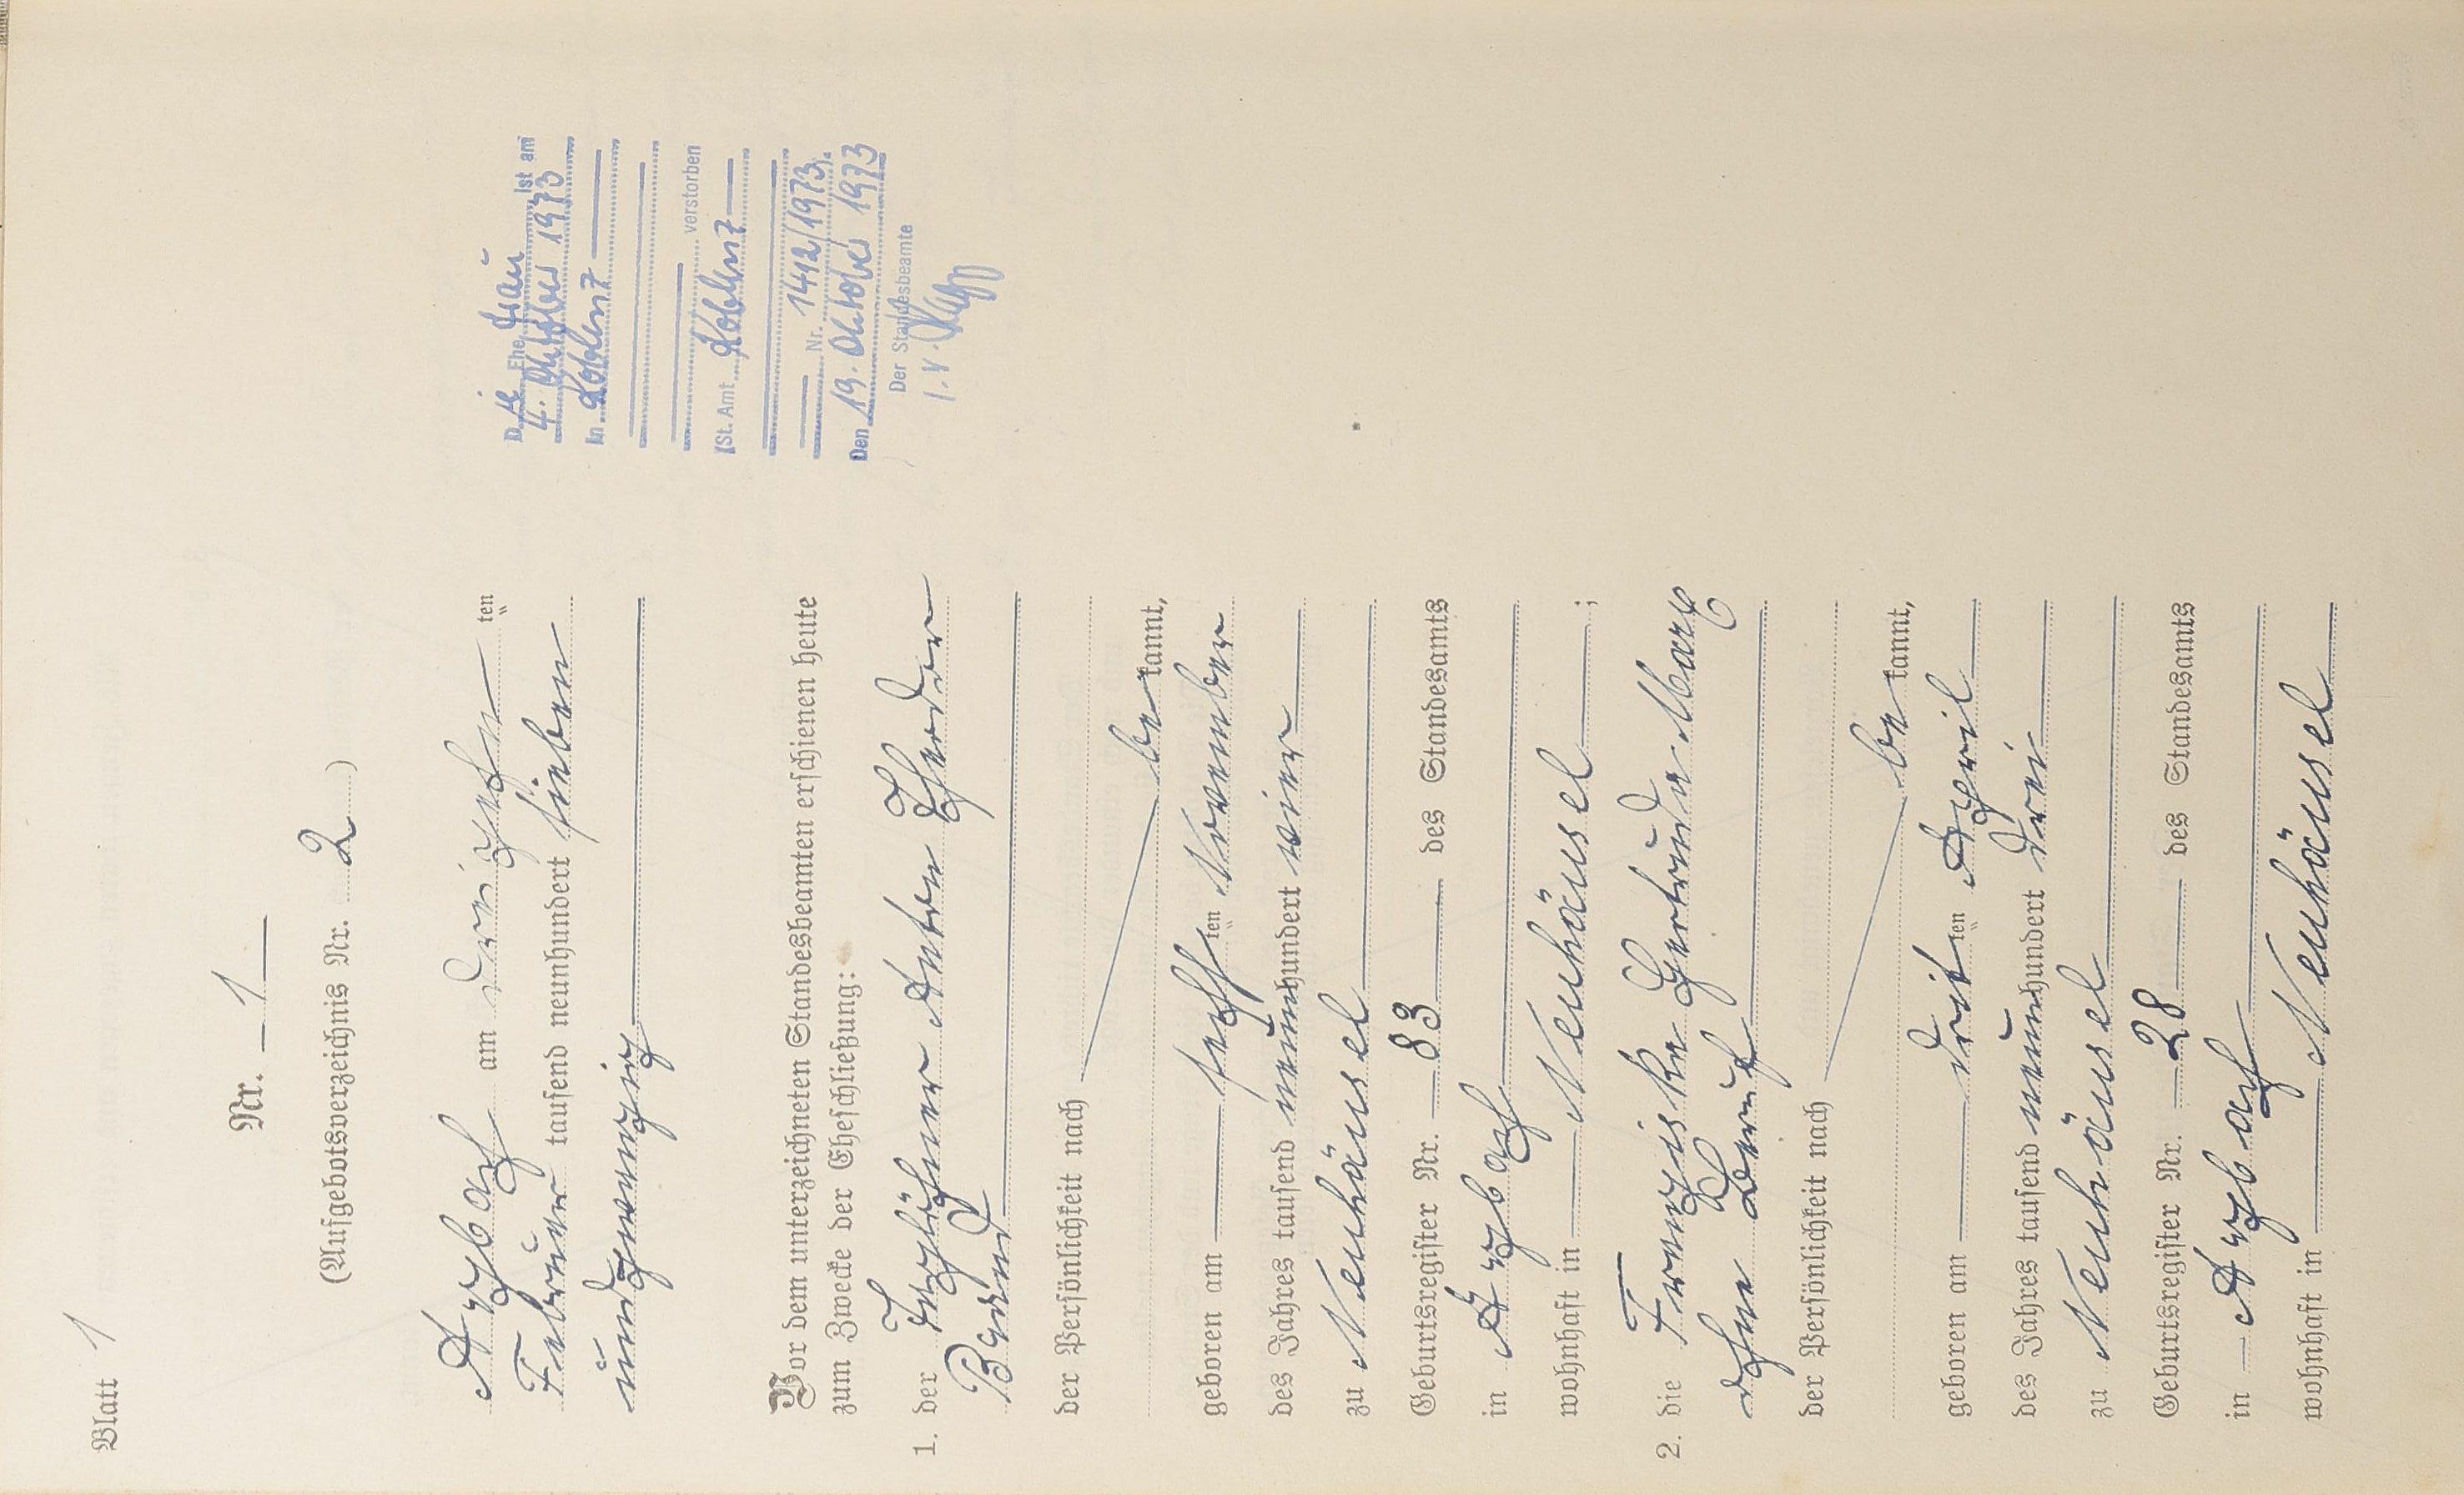 Blatt 1
Nr. 1
(Aufgebotsverzeichnis Nr. 2)
Arzbach am dreizehn ten
Februar tausend neunhundert sieben
und zwanzig
Vor dem unterzeichneten Standesbeamten erschienen heute
zum Zwecke der Eheschließung:
1. der Taglöhner Anton Theodor
Brand
der Persönlichkeit nach
be kannt,
geboren am sechs ten November
des Jahres tausend neunhundert vier
zu Neuhäusel
Geburtsregister Nr. 83 des Standesamts
in Arzbach
wohnhaft in Neuhäusel ;
2. die Franziska Gertrude Marx
ohne Beruf
der Persönlichkeit nach
be kannt,
geboren am drit ten April
des Jahres tausend neunhundert drei
zu Neuhäusel
Geburtsregister Nr. 28 des Standesamts
in Arzbach
wohnhaft in Neuhäusel
Die Ehefrau ist am
4. Oktober 1973
In Koblenz
verstorben
(St. Amt Koblenz
Nr. 1412/1973).
Den 19. Oktober 1973
Der Standesbeamte
I.V.